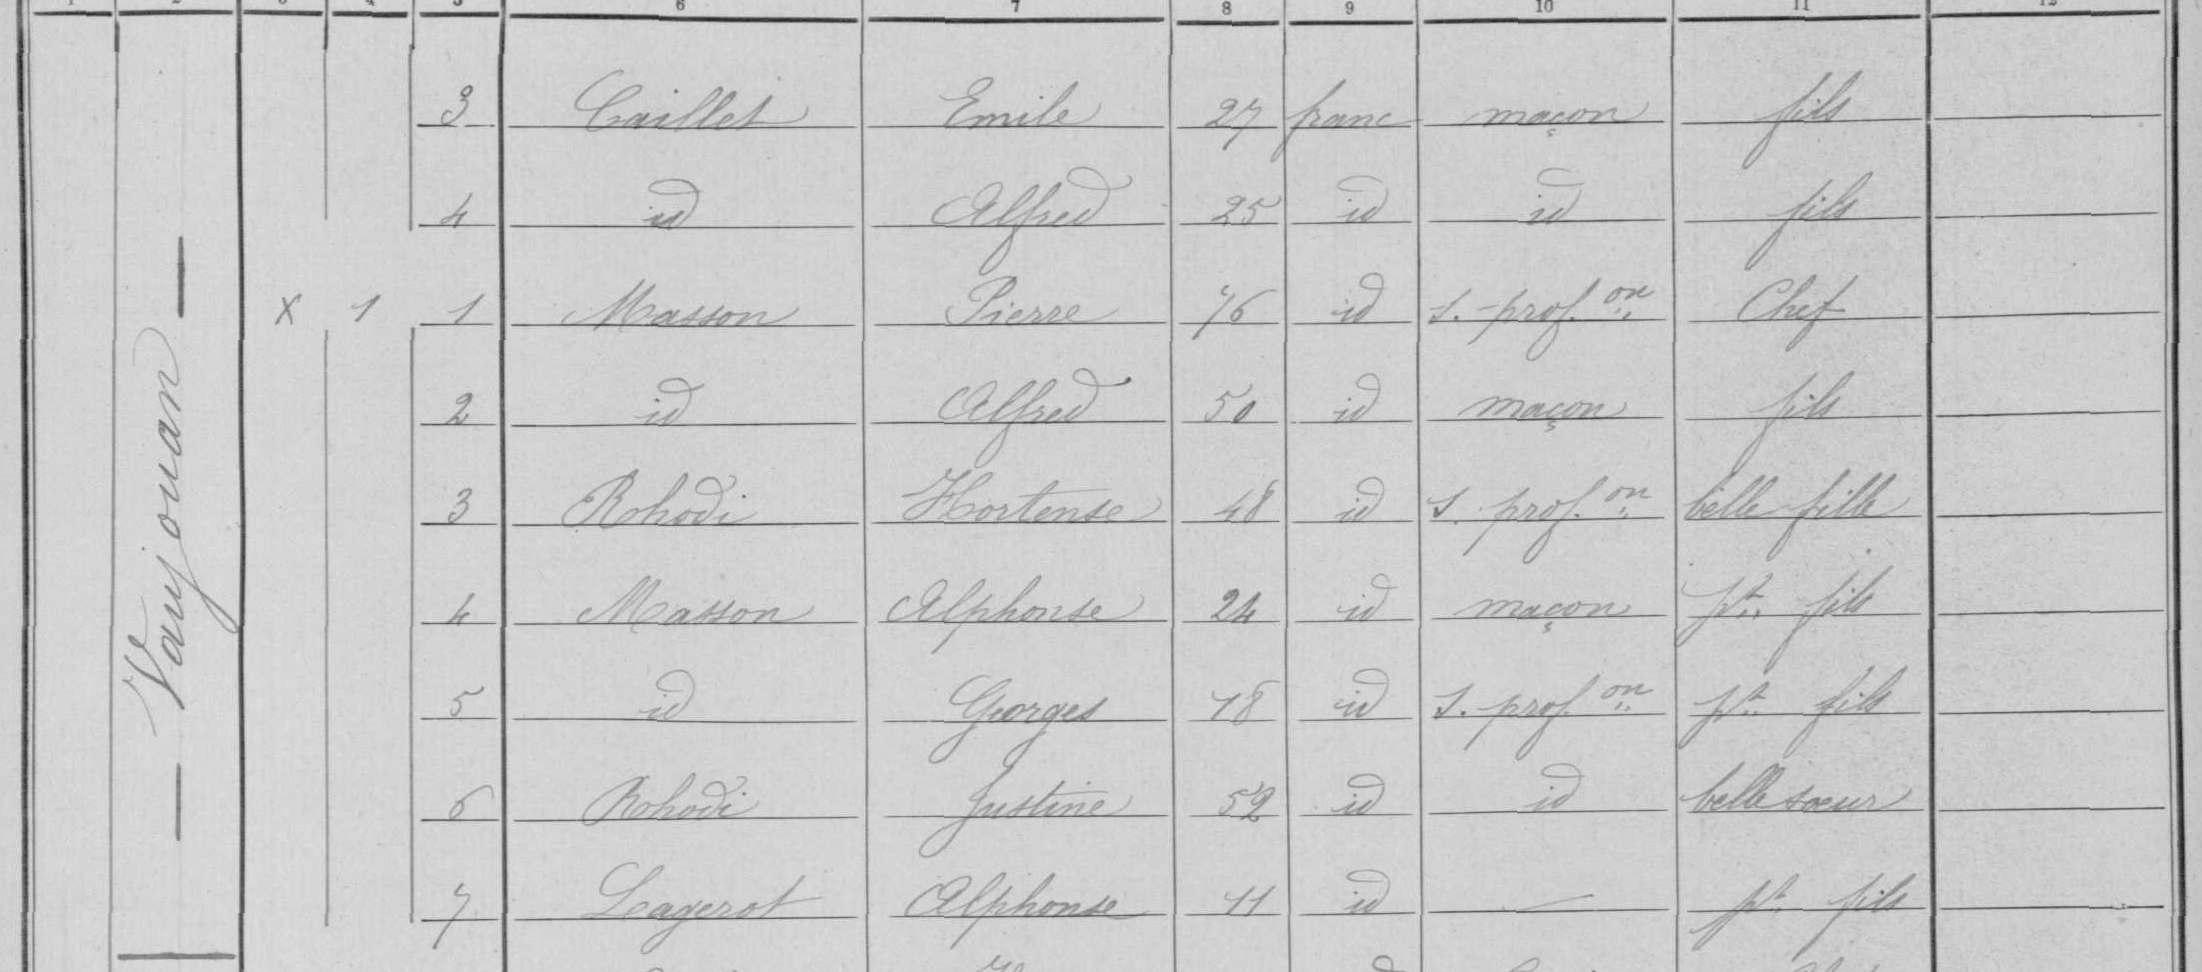 1 2 3 4 5 6 7 8 9 10 11 12
3 Caillet Emile 27 franc maçon fils
4 id Alfred 25 id id fils
Vaujouan
X 1 1 Masson Pierre 76 id s. prof.on Chef
2 id Alfred 50 id maçon fils
3 Rohodi Hortense 48 id s. prof.on belle fille
4 Masson Alphonse 24 id maçon pt. fils
5 id Georges 18 id s. prof.on pt. fils
6 Rohodi Justine 52 id id belle sœur
7 Lagerot Alphonse 11 id — pt. fils